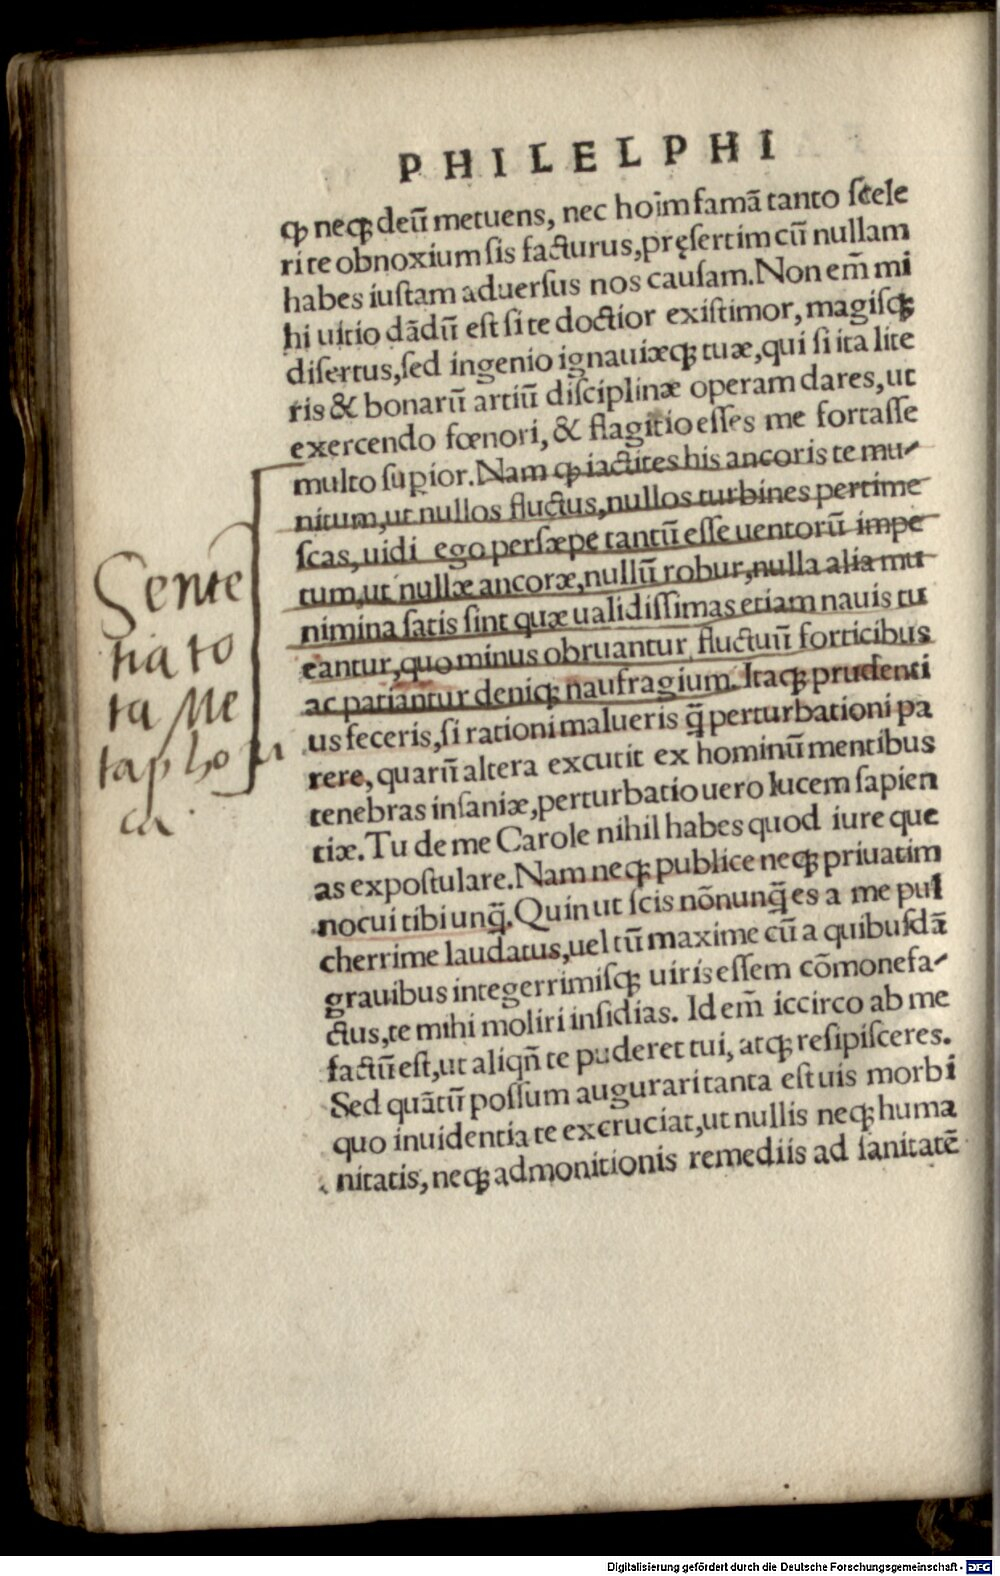 PHILELPHI
ꝙ neqꝫ deū metuens, nec hoim famā tanto ſcele
ri te obnoxium ſis facturus, pręſertim cū nullam
habes iuſtam aduerſus nos cauſam. Non em̄ mi
hi uitio dādū eſt ſi te doctior exiſtimor, magiſqꝫ
diſertus, ſed ingenio ignauiæqꝫ tuæ, qui ſi ita lite
ris & bonarū artiū diſciplinæ operam dares, ut
exercendo fœnori, & flagitio eſſes me fortaſſe
multo ſuꝑior. Nam ꝙ iactites his ancoris te mu-
nitum, ut nullos fluctus, nullos turbines pertime
ſcas, uidi ego perſæpe tantū eſſe uentorū impe
tum, ut nullæ ancoræ, nullū robur, nulla alia mu
nimina ſatis ſint quæ ualidiſſimas etiam nauis tu
eantur, quo minus obruantur fluctuū forticibus
ac patiantur deniqꝫ naufragium. Itaqꝫ prudenti
us feceris, ſi rationi malueris q̄ perturbationi pa
rere, quarū altera excutit ex hominū mentibus
tenebras inſaniæ, perturbatio uero lucem ſapien
tiæ. Tu de me Carole nihil habes quod iure que
as expoſtulare. Nam neqꝫ publice neqꝫ priuatim
nocui tibi unq̄. Quin ut ſcis nōnunq̄ es a me pul
cherrime laudatus, uel tū maxime cū a quibuſdā
grauibus integerrimiſqꝫ uiris eſſem cōmonefa-
ctus, te mihi moliri inſidias. Id em̄ iccirco ab me
factū eſt, ut aliqn̄ te puderet tui, atqꝫ reſipiſceres.
Sed quātū poſſum augurari tanta eſt uis morbi
quo inuidentia te excruciat, ut nullis neqꝫ huma
nitatis, neqꝫ admonitionis remediis ad ſanitatē
Sente
tia to
ta Me
taphori
ca
Digitalisierung gefördert durch die Deutsche Forschungsgemeinschaft - DFG